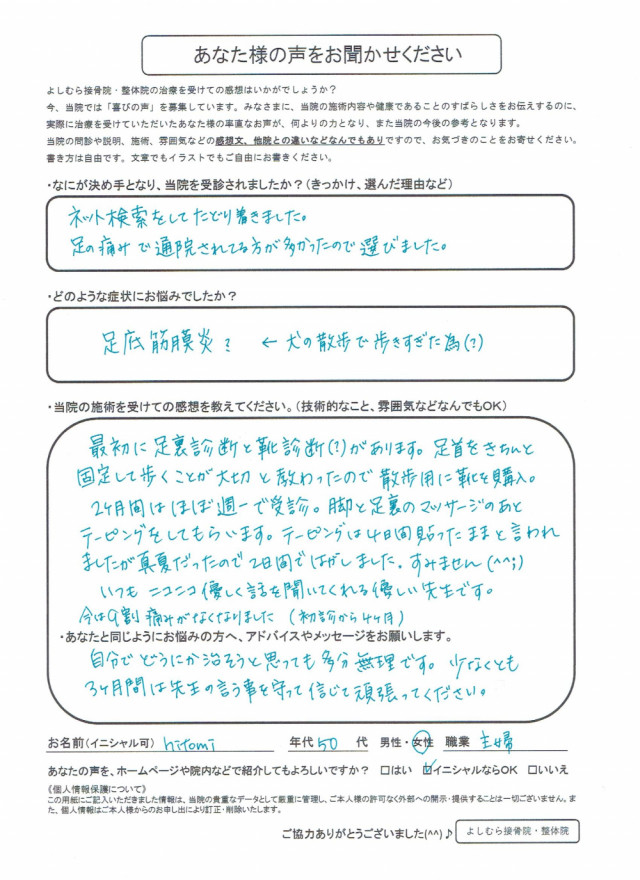 あなた様の声をお聞かせください
よしむら接骨院・整体院の治療を受けての感想はいかがでしょうか？
今、当院では「喜びの声」を募集しています。みなさまに、当院の施術内容や健康であることのすばらしさをお伝えするのに、
実際に治療を受けていただいたあなた様の率直なお声が、何よりの力となり、また当院の今後の参考となります。
当院の問診や説明、施術、雰囲気などの感想文、他院との違いなどなんでもありですので、お気づきのことをお寄せください。
書き方は自由です。文章でもイラストでもご自由にお書きください。
・なにが決め手となり、当院を受診されましたか？（きっかけ、選んだ理由など）
ネット検索をしてたどり着きました。
足の痛みで通院されてる方が多かったので選びました。
・どのような症状にお悩みでしたか？
足底筋膜炎？ ← 犬の散歩で歩きすぎた為(?)
・当院の施術を受けての感想を教えてください。（技術的なこと、雰囲気などなんでもOK）
最初に足裏診断と靴診断(?)があります。足首をきちんと
固定して歩くことが大切と教わったので散歩用に靴を購入。
2ヶ月間はほぼ週一で受診。脚と足裏のマッサージのあと
テーピングをしてもらいます。テーピングは4日間貼ったままと言われ
ましたが真夏だったので2日間ではがしました。すみません(^^;)
いつもニコニコ優しく話を聞いてくれる優しい先生です。
今は9割痛みがなくなりました（初診から4ヶ月）
・あなたと同じようにお悩みの方へ、アドバイスやメッセージをお願いします。
自分でどうにか治そうと思っても多分無理です。少なくとも
3ヶ月間は先生の言う事を守って信じて頑張ってください。
お名前（イニシャル可） hitomi 年代 50 代 男性・女性 職業 主婦
あなたの声を、ホームページや院内などで紹介してもよろしいですか？ □はい ☑イニシャルならOK □いいえ
《個人情報保護について》
この用紙にご記入いただきました情報は、当院の貴重なデータとして厳重に管理し、ご本人様の許可なく外部への開示・提供することは一切ございません。ま
た、個人情報はご本人様からのお申し出により訂正・削除いたします。
ご協力ありがとうございました(^^)♪ よしむら接骨院・整体院